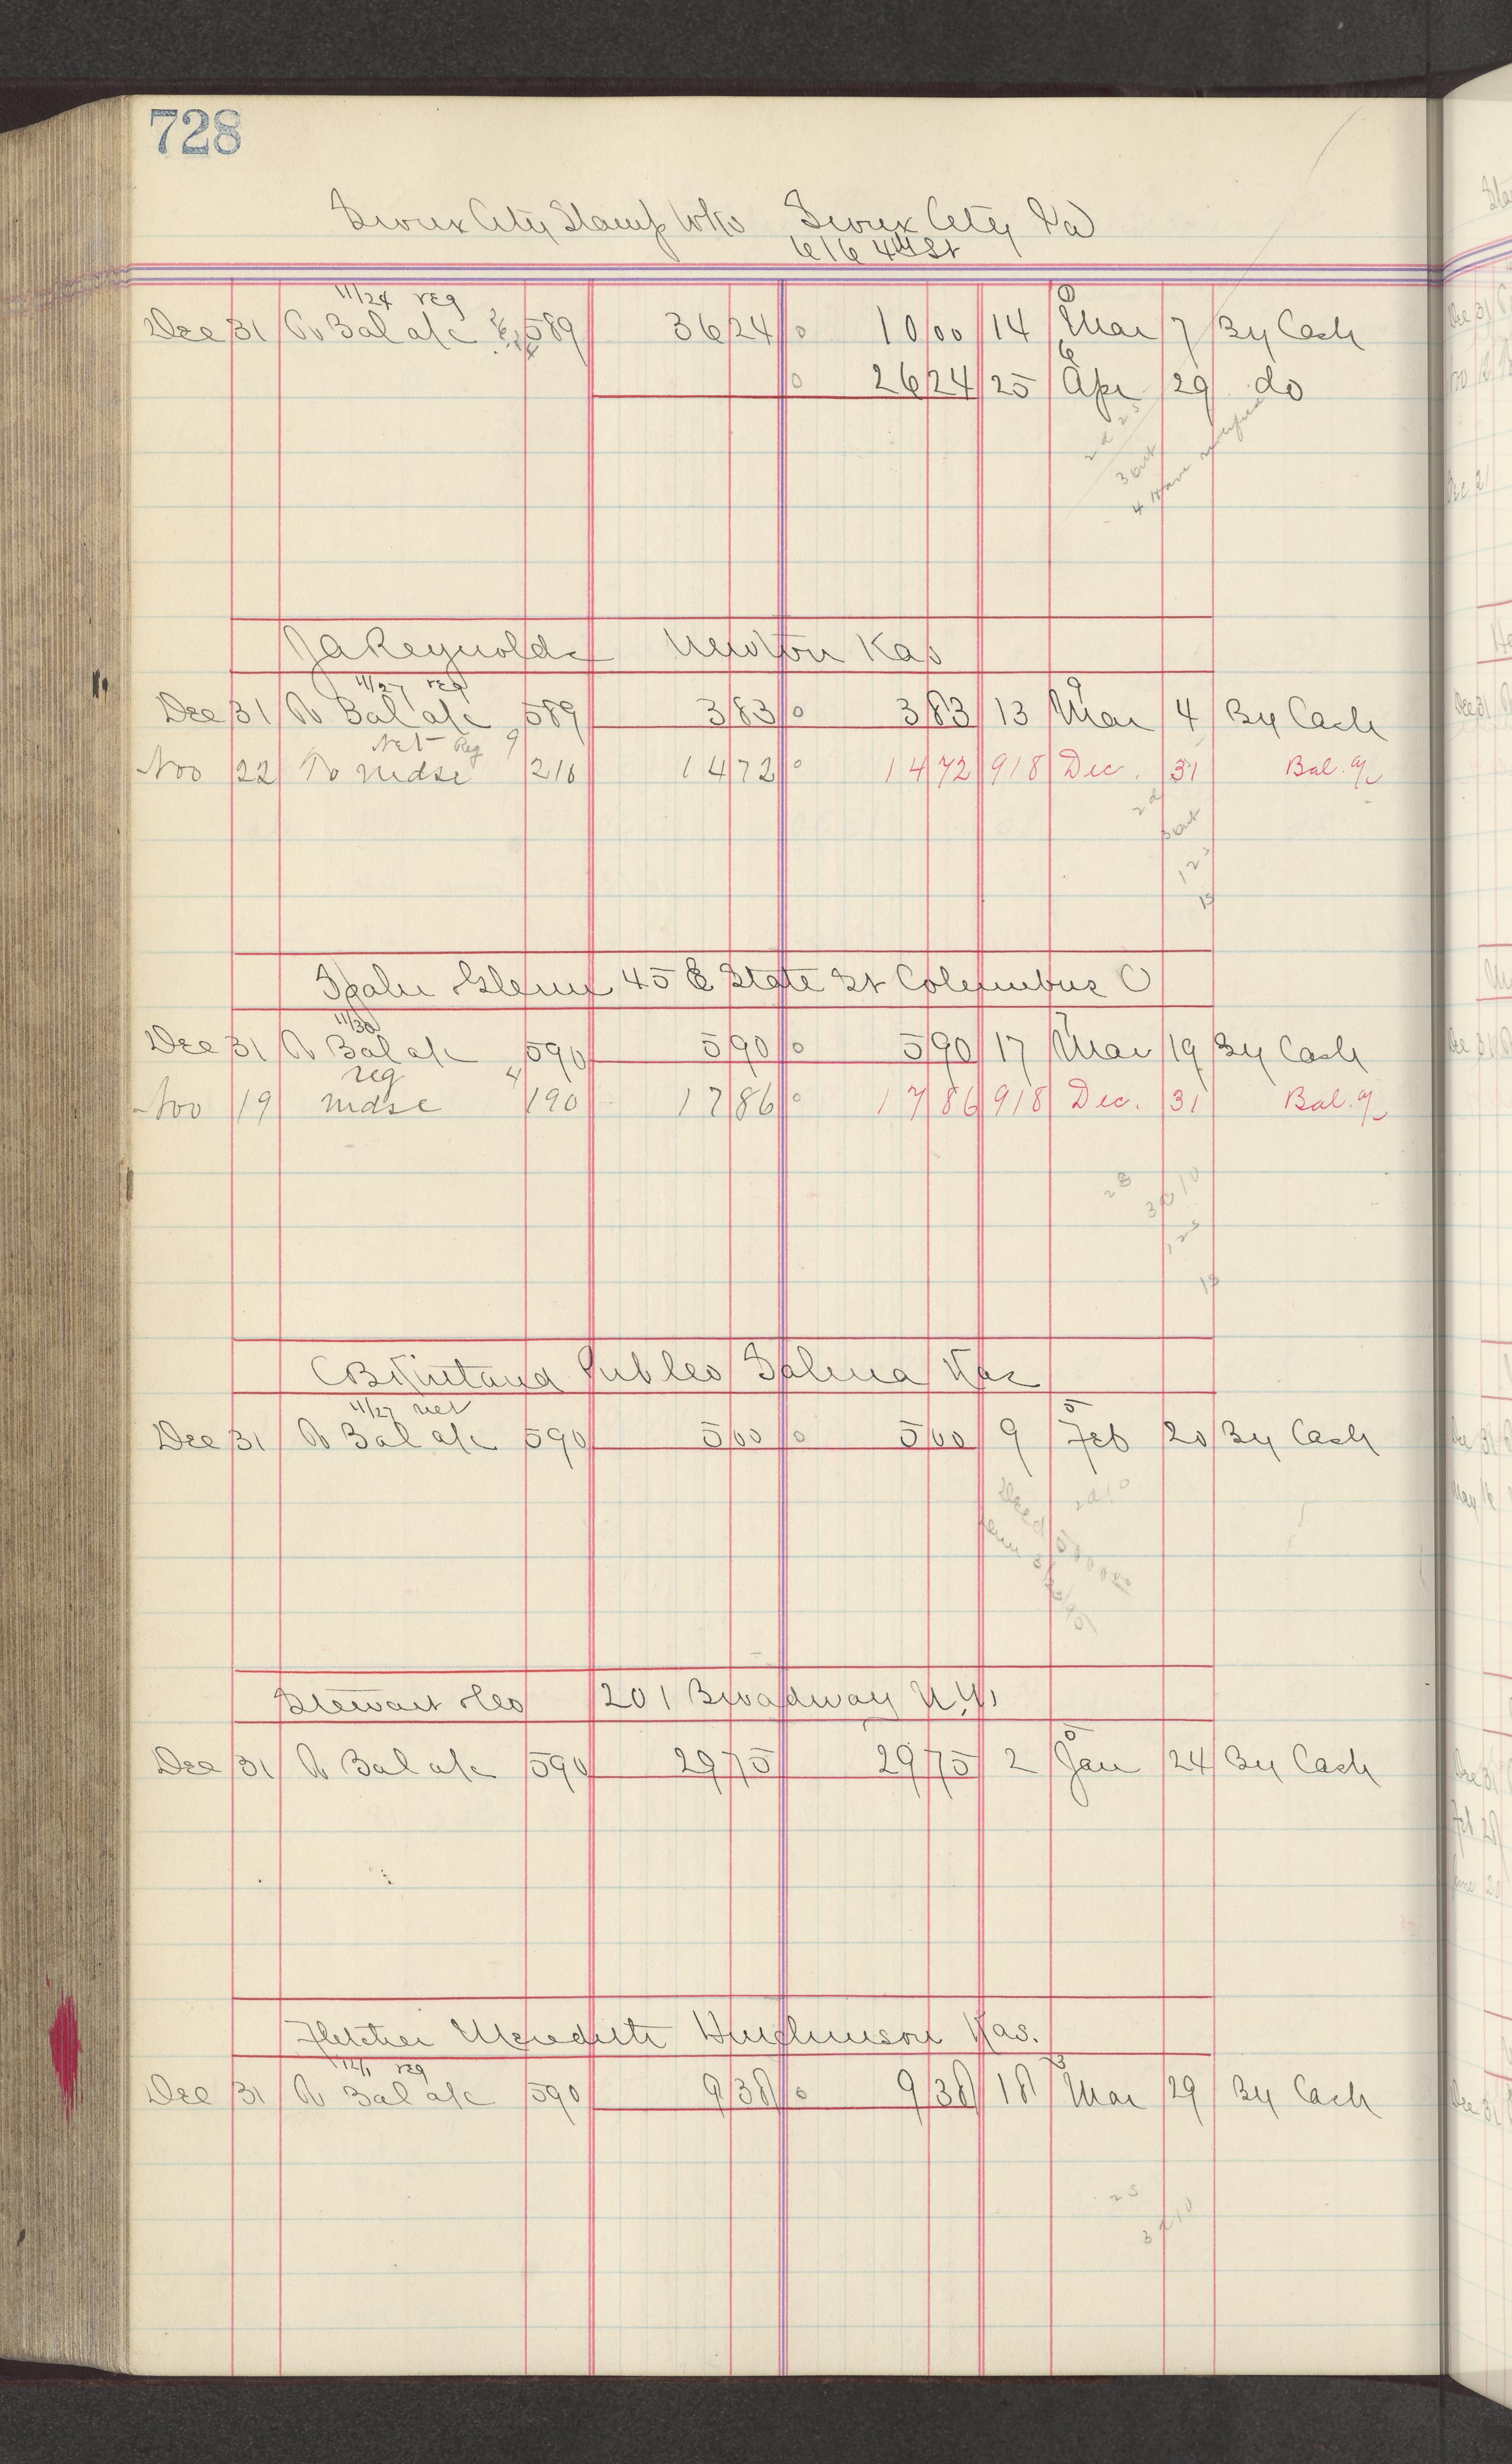 728
Sioux City Stamp Wks Sioux City Ia
616 4th St
11/24 reg
Dec 31 To Bal a/c 589 36 24 0 10 00 14 Mar 7 By Cash
0 26 24 25 Apr 29 do
J A Reynolds Newton Kas
11/27 reg
Dec 31 To Bal a/c 589 3 83 0 3 83 13 Mar 4 By Cash
Net Reg 9
Nov 22 To mdse 216 14 72 0 14 72 918 Dec. 31 Bal. a/c
Glenn 45 E State St Columbus O
11/30
Dec 31 To Bal a/c 590 5 90 0 5 90 17 Mar 19 By Cash
reg 4
Nov 19 mdse 190 17 86 0 17 86 918 Dec. 31 Bal. a/c
C B Kirtland Pub Co Salina Kas
11/27 net 5
Dec 31 To Bal a/c 590 5 00 0 5 00 9 Feb 20 By Cash
Stewart & Co 1201 Broadway N.Y.
Dec 31 To Bal a/c 590 29 75 29 75 2 Jan 24 By Cash
Fletcher Meredith Hutchinson Kas.
12/1 reg
Dec 31 To Bal a/c 590 9 38 0 9 38 18 Mar 29 By Cash